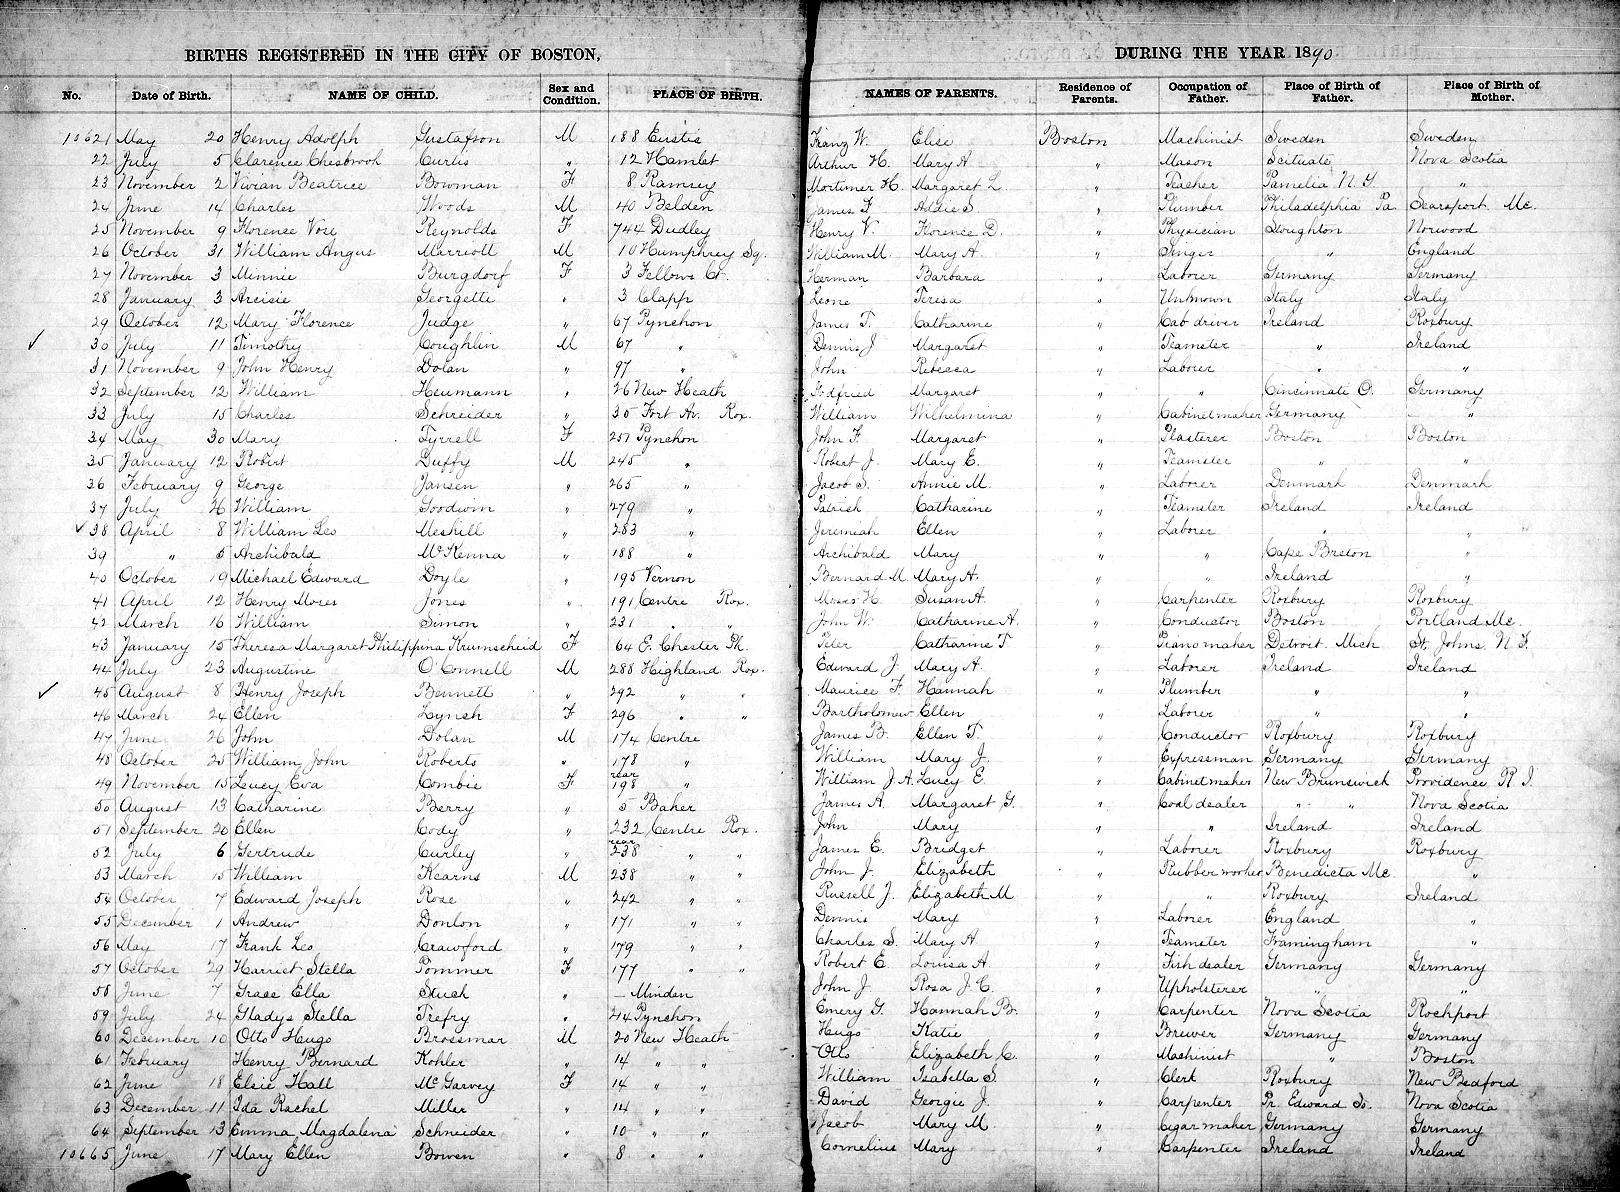 BIRTHS REGISTERED IN THE CITY OF BOSTON, DURING THE YEAR 1890
No. Date of Birth. NAME OF CHILD. Sex and Condition. PLACE OF BIRTH. NAMES OF PARENTS. Residence of Parents. Occupation of Father. Place of Birth of Father. Place of Birth of Mother.
10621 May 20 Henry Adolph Gustafson M 188 Eustis Franz W. Elise Boston Machinist Sweden Sweden
22 July 5 Clarence Chesbrook Curtis " 12 Hamlet Arthur H. Mary A. " Mason Scituate Nova Scotia
23 November 2 Vivian Beatrice Bowman F 8 Ramsey Mortimer H. Margaret L. " Teacher Pamelia N.Y. "
24 June 14 Charles Woods M 40 Belden James F. Addie S. " Plumber Philadelphia Pa. Searsport Me.
25 November 9 Florence Vose Reynolds F 744 Dudley Henry V. Florence D. " Physician Stoughton Norwood
26 October 31 William Angus Marriott M 10 Humphrey Sq. William M. Mary A. " Singer " England
27 November 3 Minnie Burgdorf F 3 Fellows Ct. Herman Barbara " Laborer Germany Germany
28 January 3 Arcisie Georgette " 3 Clapp Leone Teresa " Unknown Italy Italy
29 October 12 Mary Florence Judge " 67 Pynchon James T. Catharine " Cab driver Ireland Roxbury
30 July 11 Timothy Coughlin M 67 " Dennis J. Margaret " Teamster " Ireland
31 November 9 John Henry Dolan " 97 " John Rebecca " Laborer " "
32 September 12 William Heumann " 26 New Heath Godfried Margaret " " Cincinnati O. Germany
33 July 15 Charles Schreider " 35 Fort Av. Rox. William Wilhelmina " Cabinetmaker Germany "
34 May 30 Mary Tyrrell F 257 Pynchon John F. Margaret " Plasterer Boston Boston
35 January 12 Robert Duffy M 245 " Robert J. Mary E. " Teamster " "
36 February 9 George Jansen " 265 " Jacob S. Annie M. " Laborer Denmark Denmark
37 July 26 William Goodwin " 279 " Patrick Catharine " Teamster Ireland Ireland
38 April 8 William Leo Meskill " 283 " Jeremiah Ellen " Laborer " "
39 " 5 Archibald McKenna " 188 " Archibald Mary " " Cape Breton "
40 October 19 Michael Edward Doyle " 195 Vernon Bernard M. Mary A. " " Ireland "
41 April 12 Henry Moses Jones " 191 Centre Rox. Moses H. Susan A. " Carpenter Roxbury Roxbury
42 March 16 William Simon " 231 " " John W. Catharine A. " Conductor Boston Portland Me.
43 January 15 Theresa Margaret Philippina Krumscheid F 64 E. Chester Pk. Peter Catharine T. " Piano maker Detroit Mich St. Johns N.F.
44 July 23 Augustine O'Connell M 288 Highland Rox. Edward J. Mary A. " Laborer Ireland Ireland
45 August 8 Henry Joseph Bennett " 292 " " Maurice F. Hannah " Plumber " "
46 March 24 Ellen Lynch F 296 " " Bartholomew Ellen " Laborer " "
47 June 26 John Dolan M 174 Centre James B. Ellen T. " Conductor Roxbury Roxbury
48 October 25 William John Roberts " 178 " William Mary J. " Expressman Germany Germany
49 November 15 Lucy Eva Combie F rear 198 " William J. A. Lucy E. " Cabinetmaker New Brunswick Providence R.I.
50 August 13 Catharine Berry " 5 Baker James A. Margaret G. " Coal dealer " " Nova Scotia
51 September 20 Ellen Cody " 232 Centre Rox. John Mary " " Ireland Ireland
52 July 6 Gertrude Curley " rear 238 " " James E. Bridget " Laborer Roxbury Roxbury
53 March 15 William Kearns M 238 " " John J. Elizabeth " Rubber worker Benedicta Me. "
54 October 7 Edward Joseph Rose " 242 " " Russell J. Elizabeth M " " Roxbury Ireland
55 December 1 Andrew Donlon " 171 " " Dennis Mary " Laborer England "
56 May 17 Frank Leo Crawford " 179 " " Charles S. Mary A. " Teamster Framingham "
57 October 29 Harriet Stella Pommer F 177 " " Robert E. Louisa A. " Fish dealer Germany Germany
58 June 7 Grace Ella Stuck " — Minden John J. Rosa J. C. " Upholsterer " "
59 July 24 Gladys Stella Trefry " 214 Pynchon Emery G. Hannah B. " Carpenter Nova Scotia Rockport
60 December 10 Otto Hugo Brossmar M 20 New Heath Hugo Katie " Brewer Germany Germany
61 February Henry Bernard Kohler " 14 " " Otto Elizabeth C. " Machinist " Boston
62 June 18 Elsie Hall McGarvey F 14 " " William Isabella S. " Clerk Roxbury New Bedford
63 December 11 Ida Rachel Miller " 14 " " David Georgie J. " Carpenter Pr. Edward Is. Nova Scotia
64 September 13 Emma Magdalena Schneider " 10 " " Jacob Mary M. " Cigar maker Germany Germany
10665 June 17 Mary Ellen Bowen " 8 " " Cornelius Mary " Carpenter Ireland Ireland